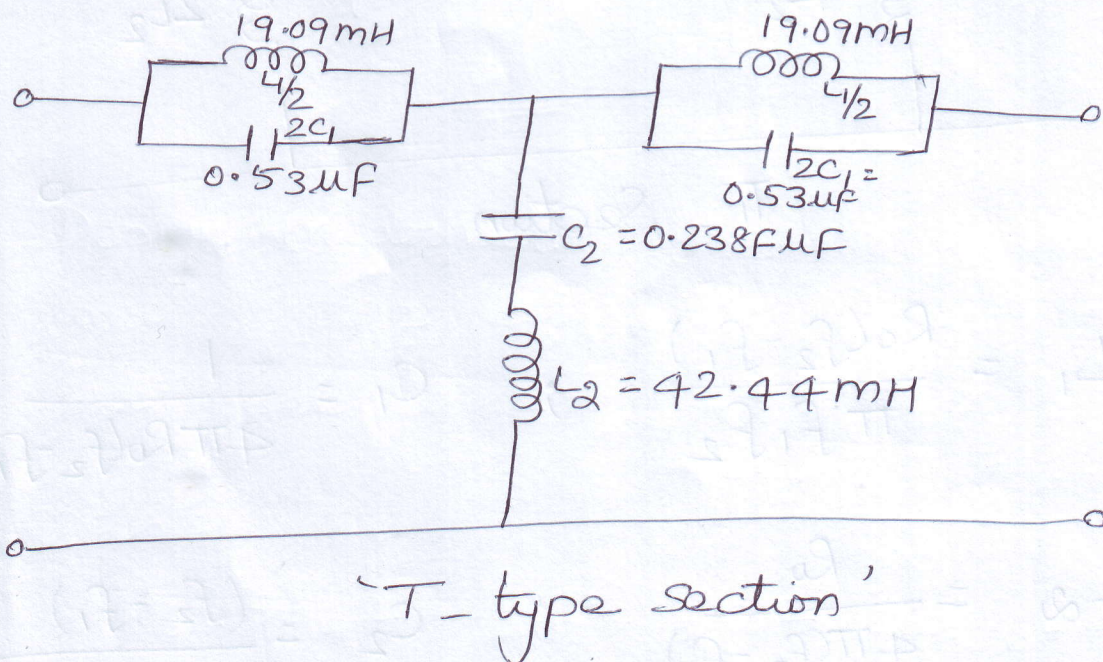 19.09mH
L1/2
2C1
0.53µF
19.09mH
L1/2
2C1=
0.53µF
C2 = 0.238FµF
L2 = 42.44mH
'T- type section'